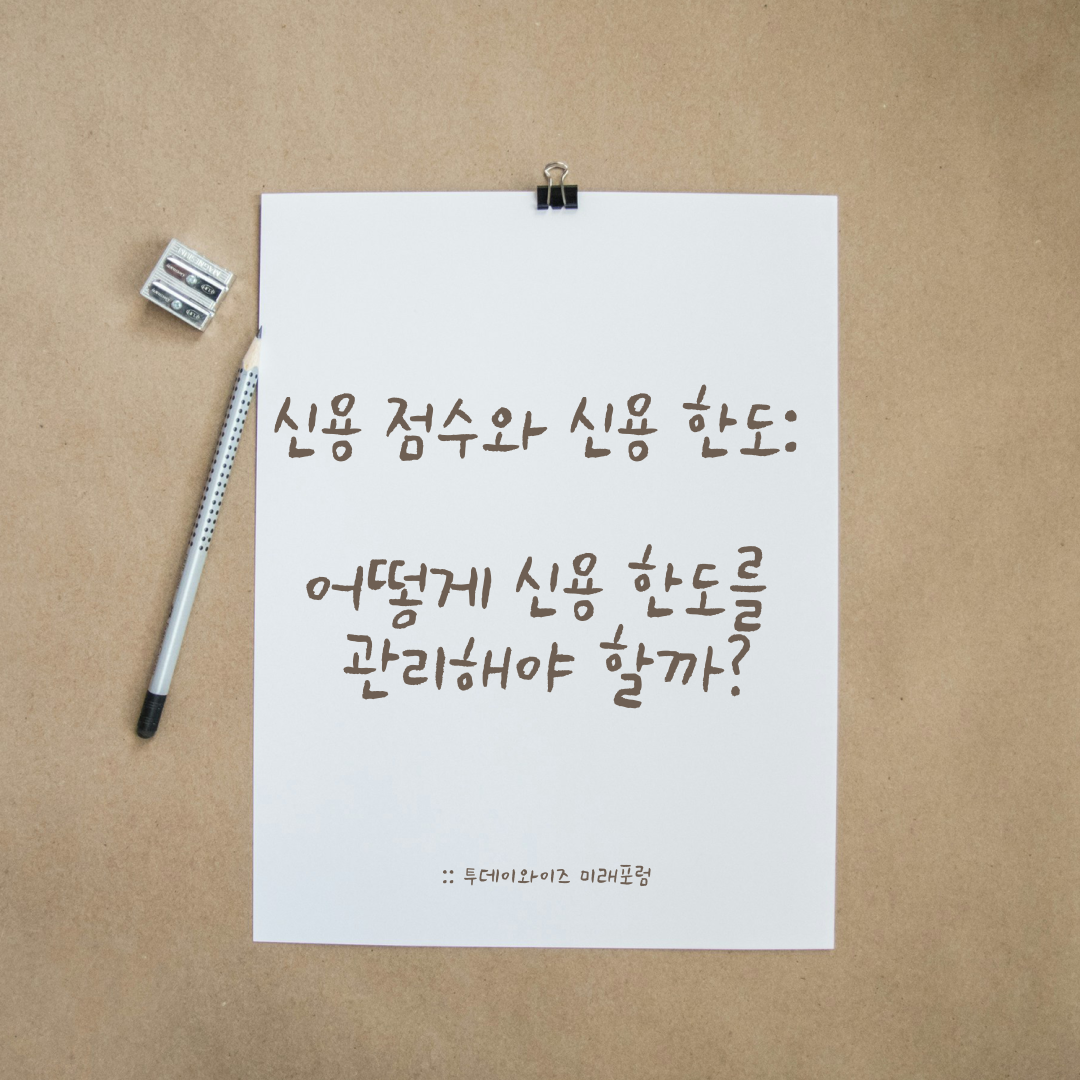 신용 점수와 신용 한도:
어떻게 신용 한도를
관리해야 할까?
:: 투데이와이즈 미래포럼